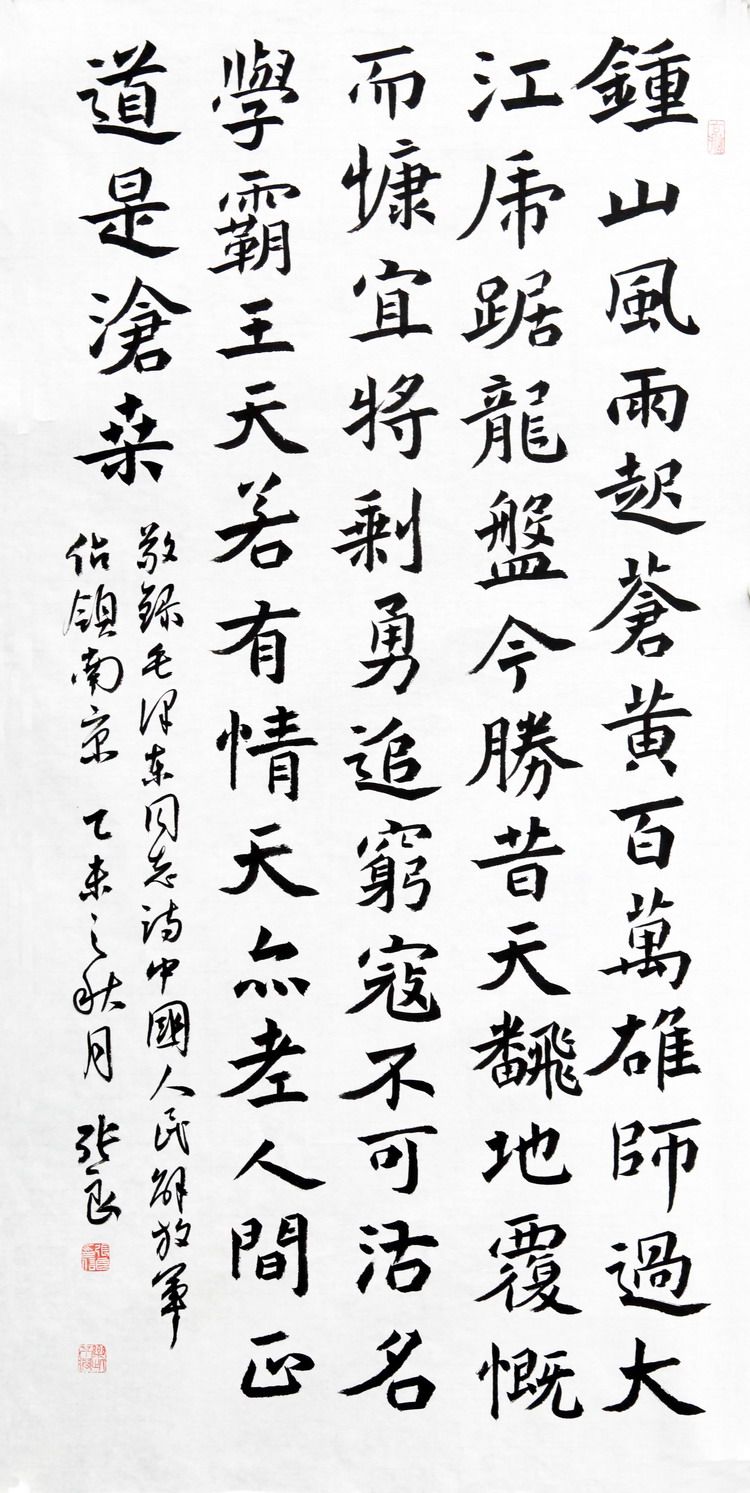 鍾山風雨起蒼黄百萬雄師過大
江虎踞龍盤今勝昔天飜地覆慨
而慷宜將剩勇追窮寇不可沽名
學霸王天若有情天亦老人間正
道是滄桒
敬録毛澤東同志詩中國人民解放軍
佔領南京 乙未之秋月 張良